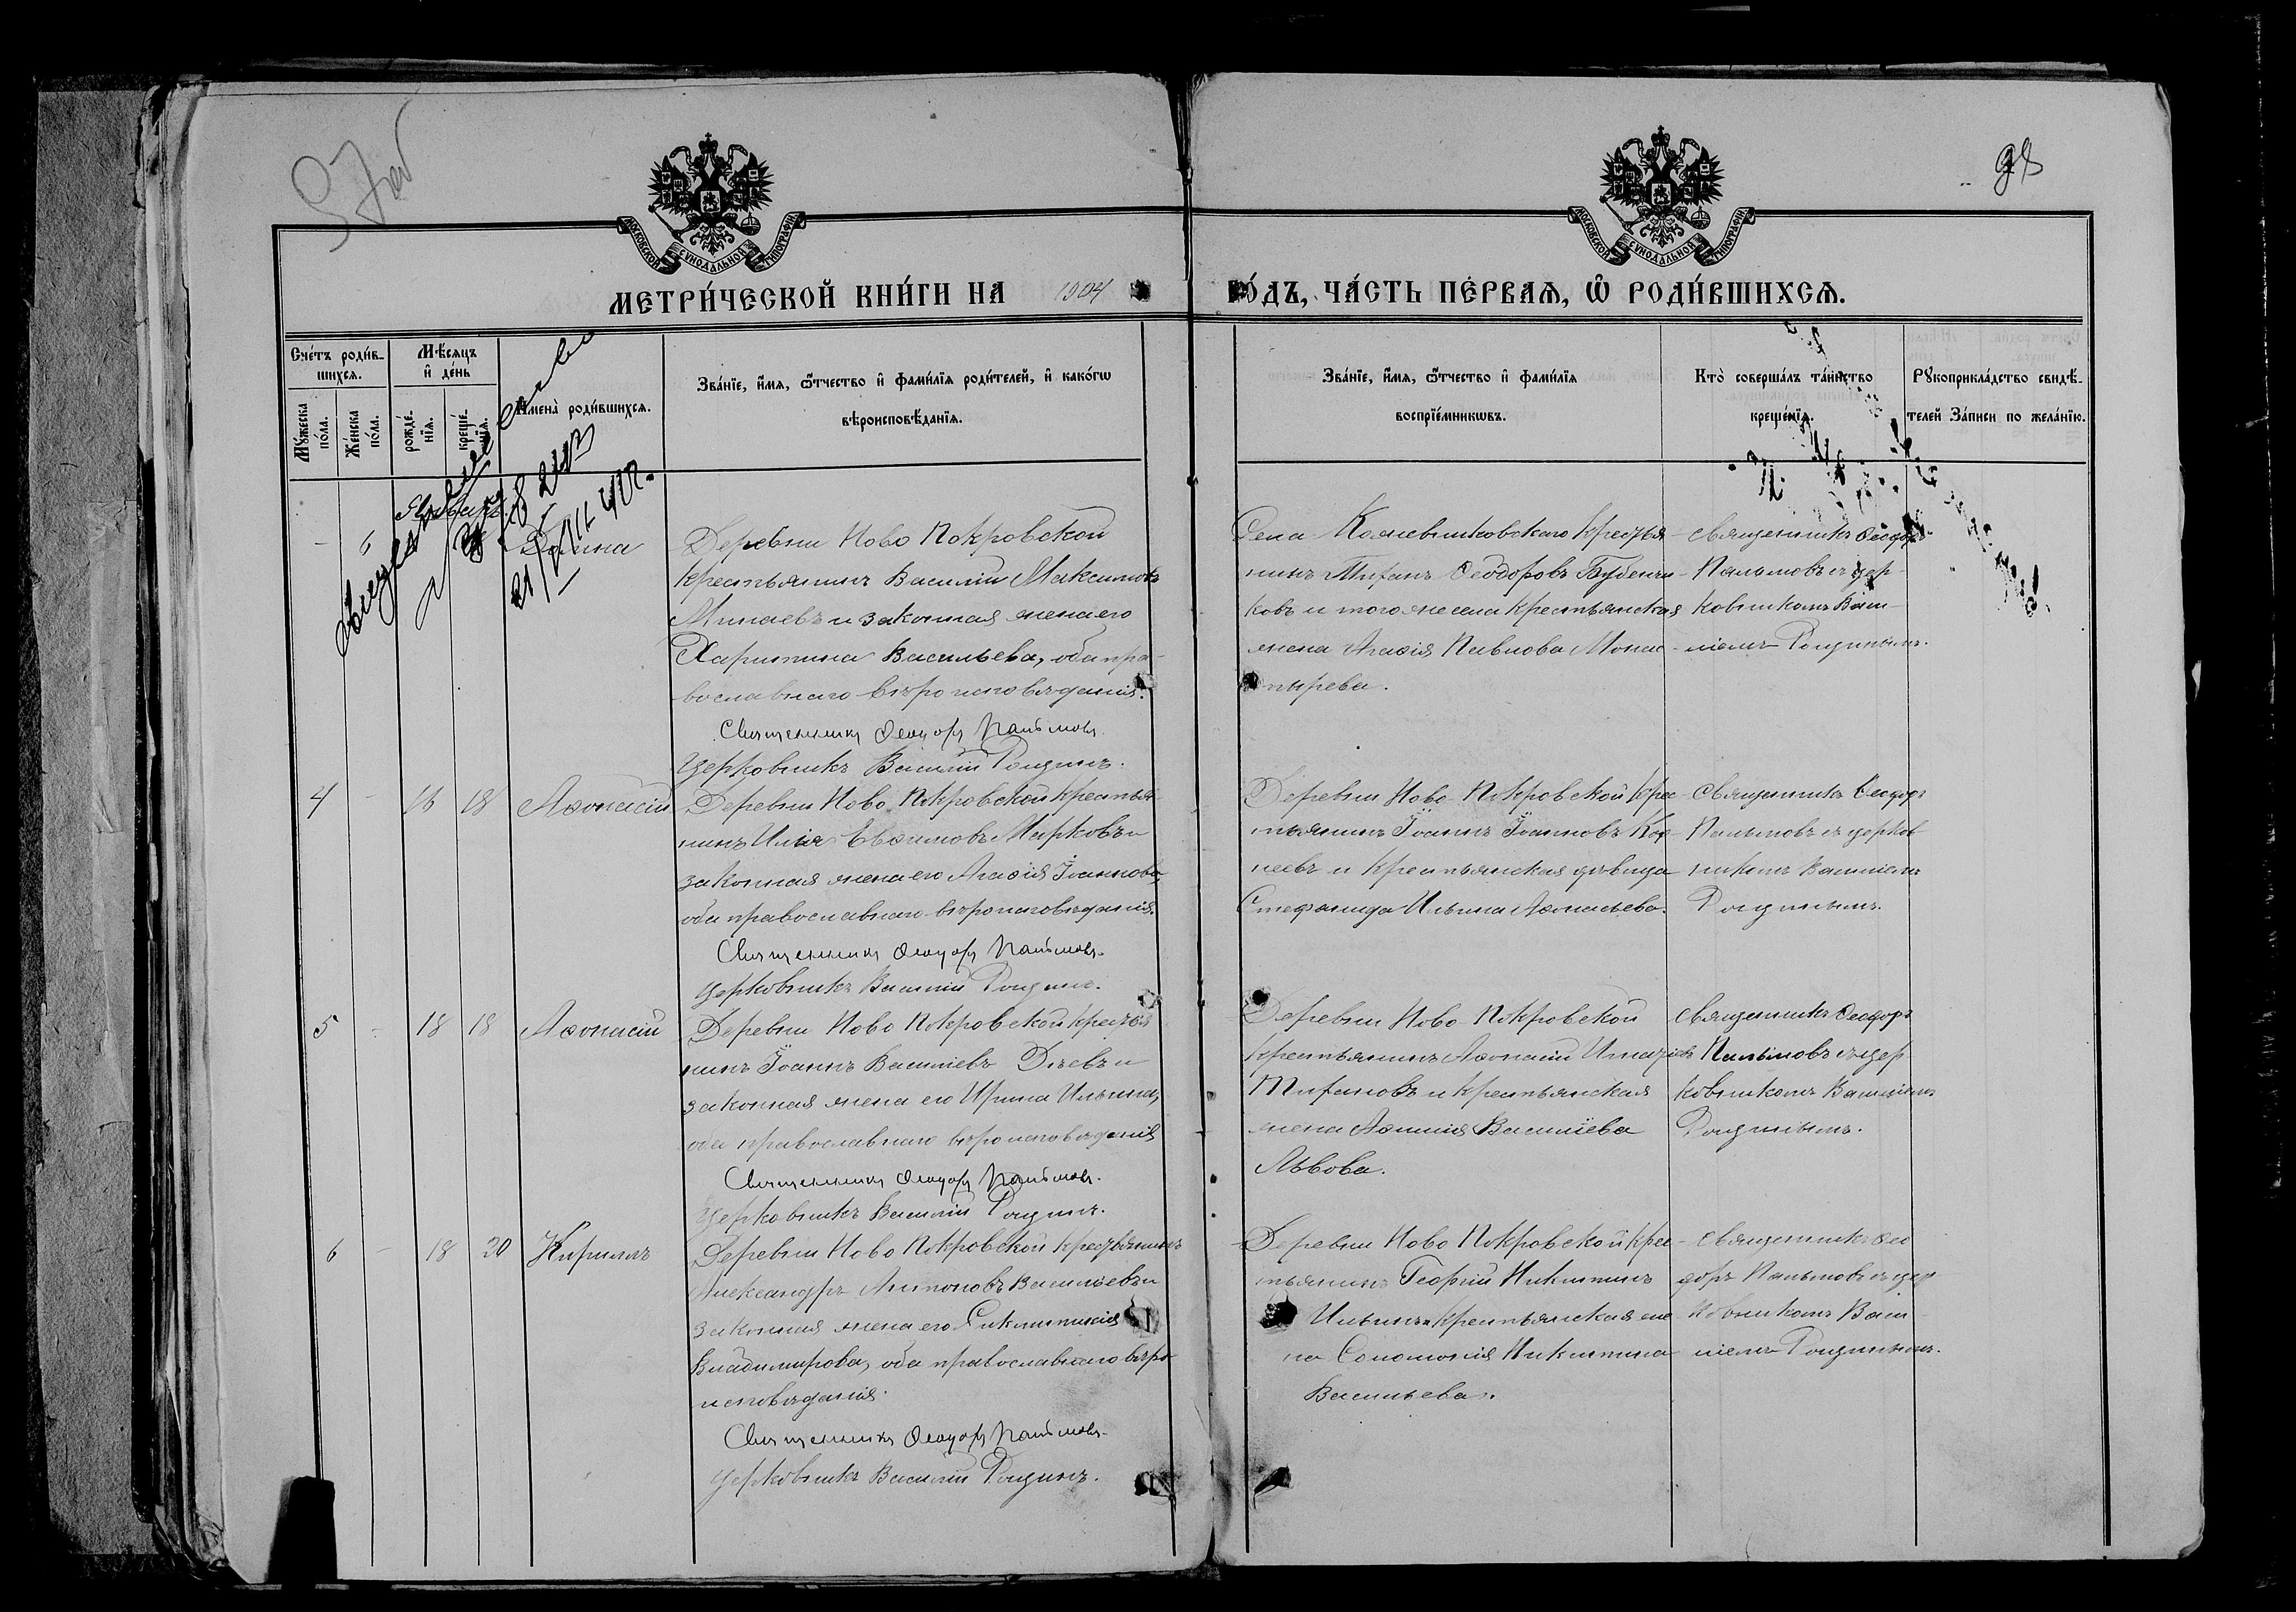 98
МОСКОВСКОЙ СУНОДАЛЬНОЙ ТИПОГРАФІИ
МОСКОВСКОЙ СУНОДАЛЬНОЙ ТИПОГРАФІИ
МЕТРИ́ЧЕСКОЙ КНИ́ГИ НА 1904 ГО́ДЪ, ЧА́СТЬ ПЕ́РВАЯ, Ѿ РОДИ́ВШИХСЯ.
Сче́тъ роди́в-
шихся.
Мꙋ́жеска по́ла.
Же́нска по́ла.
Мѣ́сяцъ и де́нь
рожде́нїя.
креще́нїя.
Имена̀ роди́вшихся.
Зва́нїе, и́мя, ѻ́тчество и фами́лїя роди́телей, и како́гѡ
вѣроисповѣ́данїя.
Зва́нїе, и́мя, ѻ́тчество и фами́лїя
воспрїе́мникѡвъ.
Кто̀ соверша́лъ та́инство
креще́нїя.
Рꙋкоприкла́дство свидѣ́-
телей За́писи по жела́нїю.
Январь
- 6
Деревни Ново Покровской
крестьянинъ Василій Максимовъ
Минаевъ и законная жена его
Харитина Васильева, оба пра-
вославнаго вѣроисповѣданія.
Священникъ Ѳеодоръ Пальмовъ.
Церковникъ Василій Рощинъ.
Села крестья-
нинъ Ѳеодоровъ
ковъ и того же села крестьянская
жена Агаѳія Павлова Монас-
тырева.
Священникъ Ѳеодоръ
Пальмовъ съ цер-
ковникомъ Васи-
ліемъ Рощинымъ.
4 - 16 18 Аѳонасій
Деревни Ново Покровской крестья-
нинъ Илія Евѳимовъ Мирковъ и
законная жена его Агаѳія Іоаннова,
оба православнаго вѣроисповѣданія.
Священникъ Ѳеодоръ Пальмовъ.
Церковникъ Василій Рощинъ.
Деревни Ново Покровской крес-
тьянинъ Іоаннъ Іоанновъ Кор-
неевъ и крестьянская дѣвица
Стефанида Ильина Аѳанасьева.
Священникъ Ѳеодоръ
Пальмовъ съ церков
никомъ Василіемъ
Рощинымъ.
5 - 18 18 Аѳонасій
Деревни Ново Покровской крестья
нинъ Іоаннъ Василіевъ Дѣевъ и
законная жена его Ирина Ильина,
оба православнаго вѣроисповѣданія
Священникъ Ѳеодоръ Пальмовъ.
Церковникъ Василій Рощинъ.
Деревни Ново Покровской
крестьянинъ Аѳонасій Игнатіевъ
и крестьянская
жена Василіева
Львова.
Священникъ Ѳеодоръ
Пальмовъ съ цер
ковникомъ Василіемъ
Рощинымъ.
6 - 18 20 Кириллъ
Деревни Ново Покровской крестьянинъ
Александръ Антоновъ Васильевъ и
законная жена его
Владимирова, оба православнаго вѣро
исповѣданія.
Священникъ Ѳеодоръ Пальмовъ.
Церковникъ Василій Рощинъ.
Деревни Ново Покровской крес-
тьянинъ Георгій Никитинъ
Ильинъ и крестьянская же-
на Соломонія Никитина
Васильева.
Священникъ Ѳео
доръ Пальмовъ съ цер
ковникомъ Васи-
ліемъ Рощинымъ.